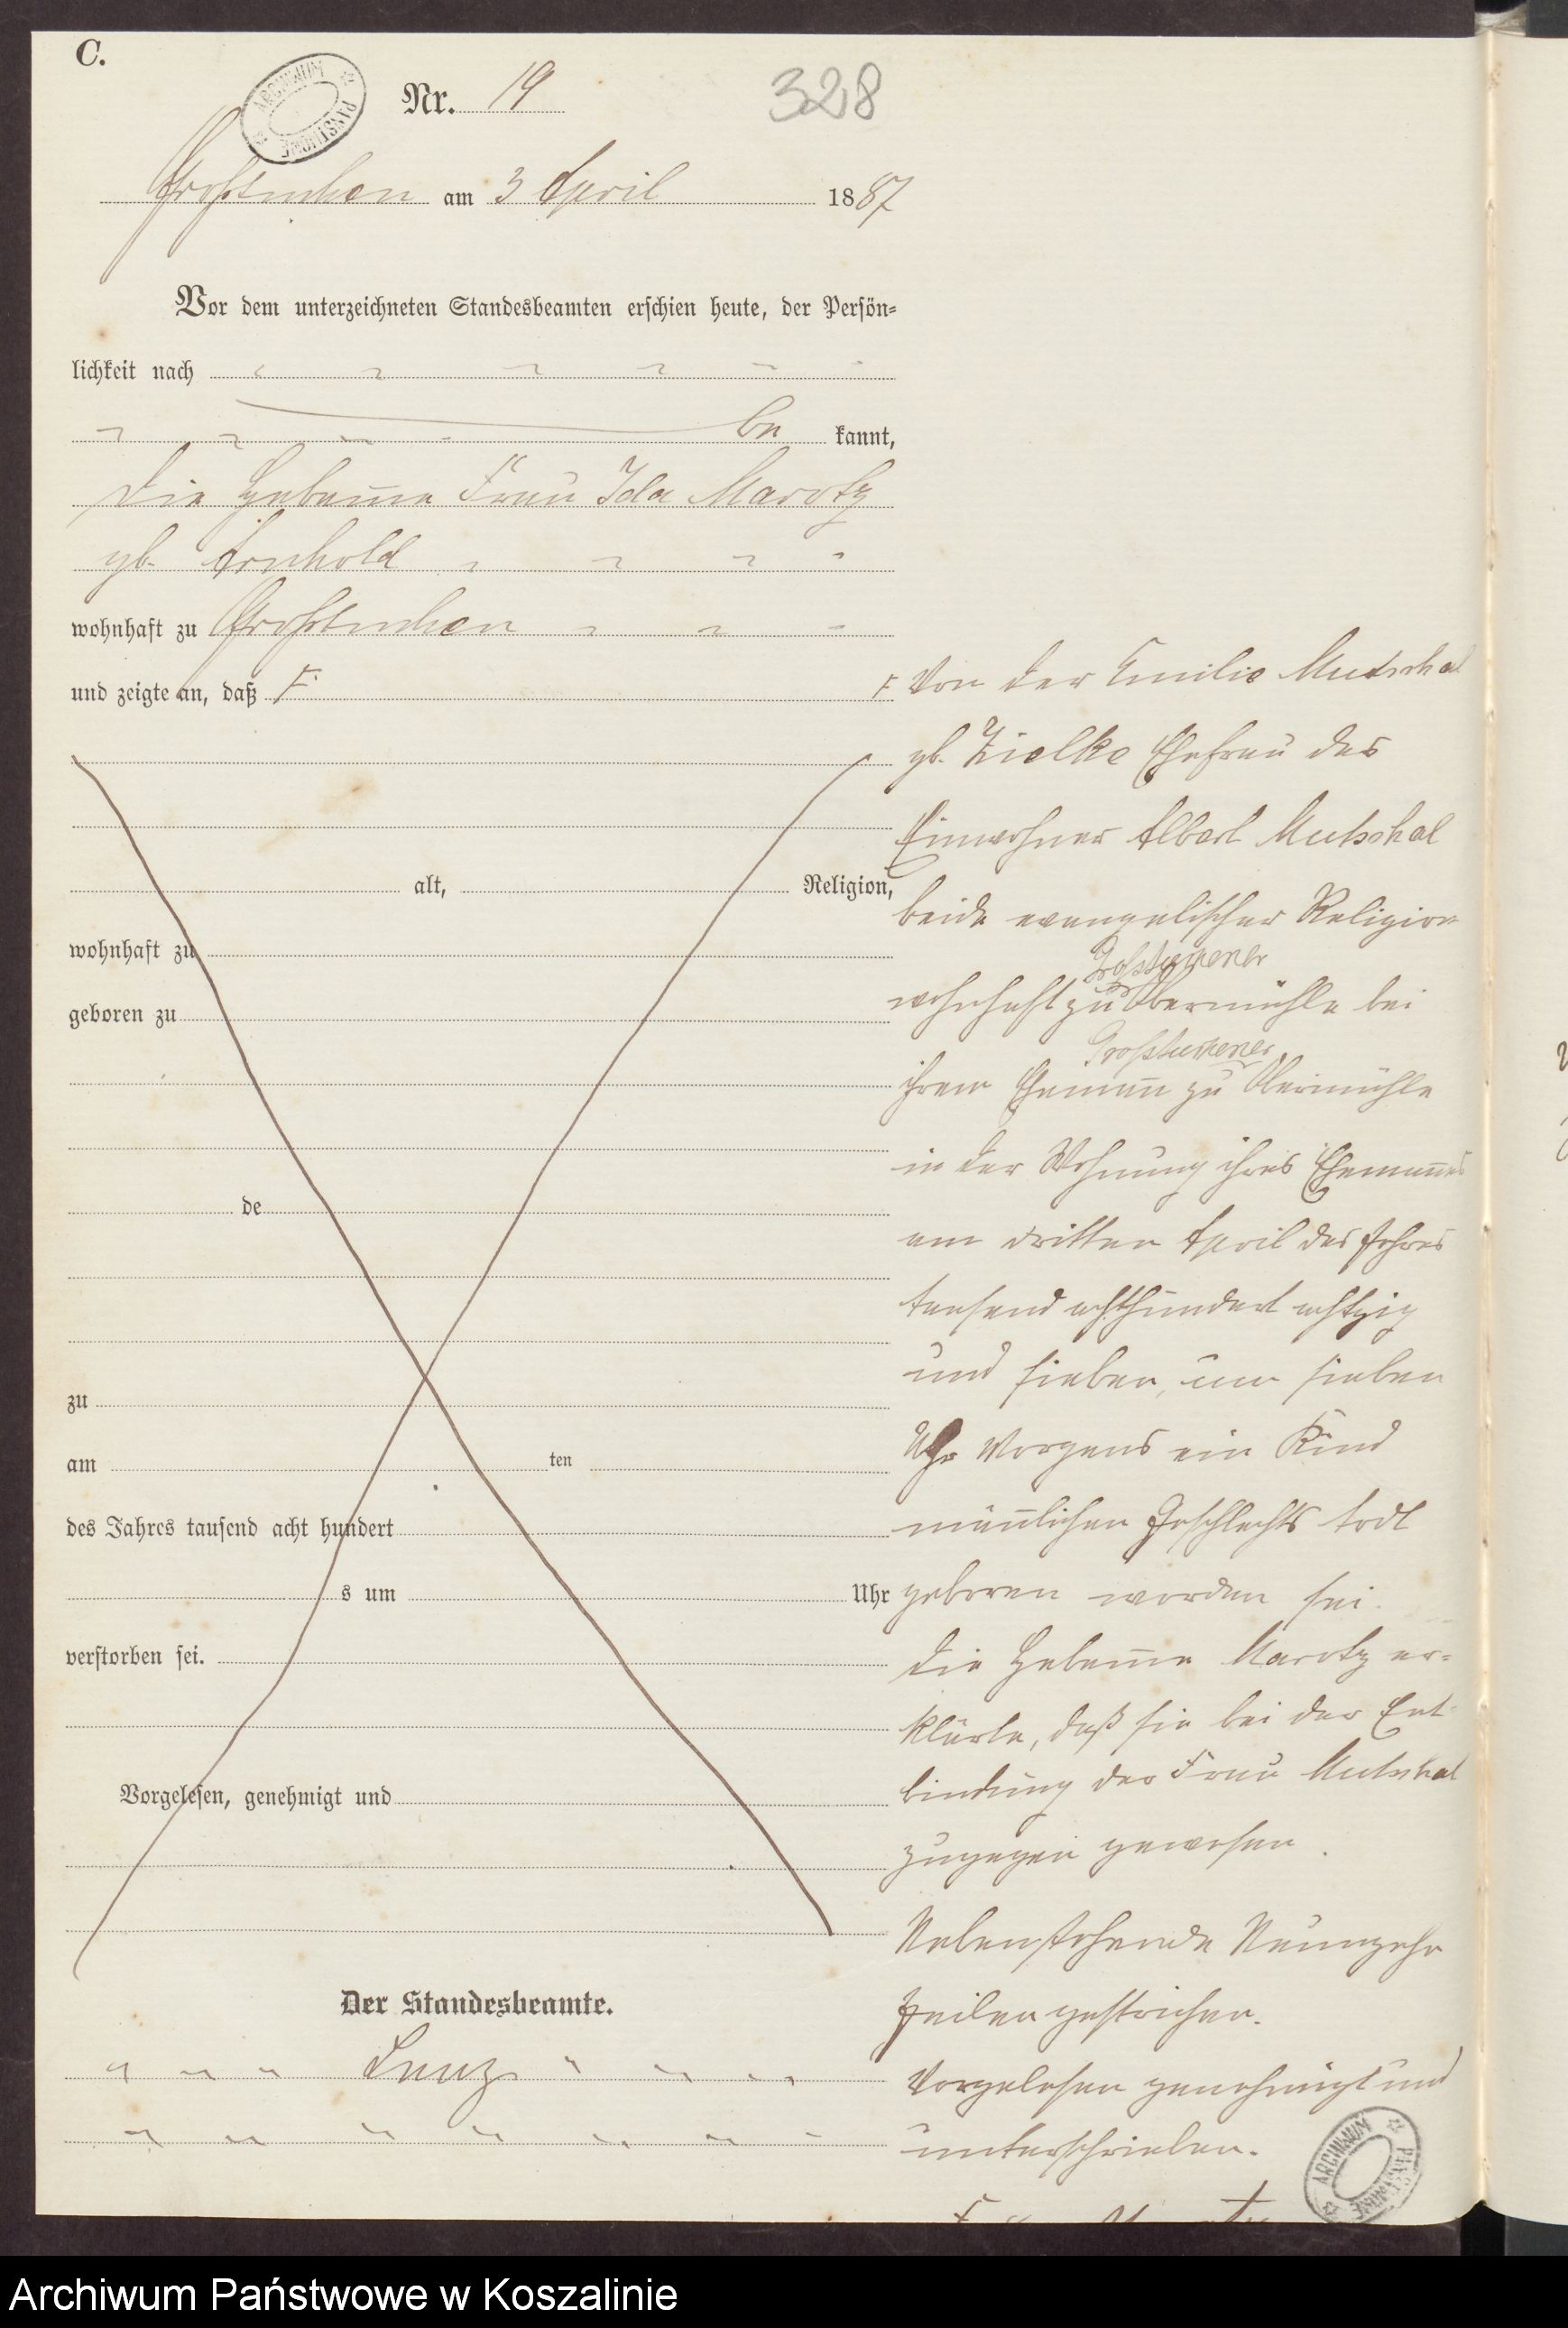 C.
ARCHIWUM PAŃSTWOWE
Nr. 19
328
Großtuchen am 3 April 1887
Vor dem unterzeichneten Standesbeamten erschien heute, der Persön-
lichkeit nach
be kannt,
die Hebam̅e Frau Ida Marotz
gb. Arnhold
wohnhaft zu Großtuchen
und zeigte an, daß F
alt, Religion,
wohnhaft zu
geboren zu
de
zu
am ten
des Jahres tausend acht hundert
s um Uhr
verstorben sei.
Vorgelesen, genehmigt und
Der Standesbeamte.
Lenz
F Von der Emilie Mutschal
gb. Zielke Ehefrau des
Einwohner Albert Mutschal
beide evangelischer Religion
Großtuchener
wohnhaft zu Obermühle bei
Großtuchener
ihrem Eheman̅ zu Obermühle
in der Wohnung ihres Eheman̅es
am dritten April des Jahres
tausend achthundert achtzig
und sieben, um sieben
Uhr Morgens ein Kind
män̅lichen Geschlechts todt
geboren worden sei.
Die Hebam̅e Marotz er-
klärte, daß sie bei der Ent-
bindung der Frau Mutschal
zugegen gewesen.
Nebenstehende Neunzehn
Zeilen gestrichen.
Vorgelesen genehmigt und
unterschrieben.
ARCHIWUM PAŃSTWOWE
Archiwum Państwowe w Koszalinie